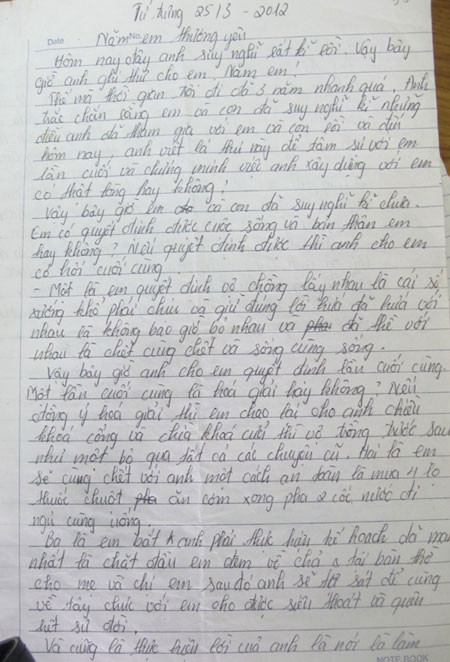 Tử từng 25/3 - 2012
Date No.
Năm em thương yêu
Hôm nay đây anh suy nghĩ rất kĩ rồi. Vậy bây
giờ anh ghi thư cho em. Năm em!
Thế mà thời gian trôi đi đã 3 năm nhanh quá. Anh
chắc chắn rằng em và con đã suy nghĩ kĩ những
điều anh đã tham gia với em và con rồi và đến
hôm nay, anh viết lá thư này để tâm sự với em
lần cuối và chứng minh việc anh xây dựng với em
có thật lòng hay không!
Vậy bây giờ em và con đã suy nghĩ kĩ chưa.
Em có quyết định được cuộc sống và bản thân em
hay không? Nếu quyết định được thì anh cho em
cơ hội cuối cùng
- Một là em quyết định vợ chồng lấy nhau là cái số
sướng khổ phải chịu và giữ đúng lời hứa đã hứa với
nhau là không bao giờ bỏ nhau và đã thề với
nhau là chết cùng chết và sống cùng sống.
Vậy bây giờ anh cho em quyết định lần cuối cùng.
Một lần cuối cùng là hoà giải hay không? Nếu
đồng ý hoà giải thì em chao lai cho anh chiều
khoa cổng và chìa khoá cưởi thì vợ trồng trước sau
như một bỏ qua tất cả các chuyện cũ. Hai là em
sẽ cùng chết với anh một cách an toàn là mua 4 lọ
thuốc chuột ăn cơm xong pha 2 cốc nước đi
ngủ cùng uống.
Ba là em bắt anh phải thực hiện kế hoạch dã man
nhất là chặt đầu em đem về chả tại bàn thờ
cho mẹ và chị em sau đó anh sẽ tự sát để cùng
về tây chúc với em cho được siêu thoát và quên
hết sự đời.
Và cũng là thực hiện lời của anh là nói là làm
NOTE BOOK